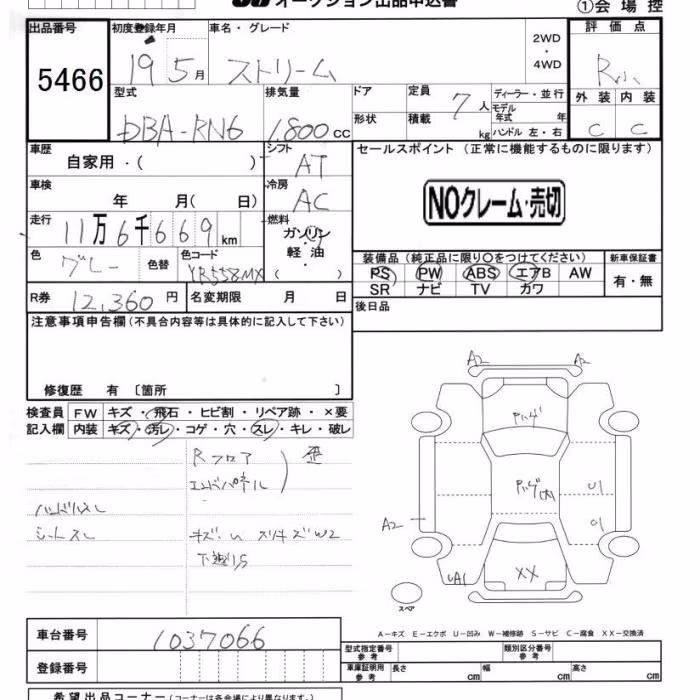 オークション出品申込書
①会場控
出品番号 初度登録年月 車名・グレード 2WD・4WD 評価点
5466 19 5月 ストリーム R
外装 内装
C C
型式 排気量 ドア 定員 7人 ディーラー・並行
DBA-RN6 1,800cc 形状 積載 kg モデル年式 年
ハンドル 左・右
車歴 自家用・( ) シフト AT セールスポイント(正常に機能するものに限ります)
車検 年 月( 日) 冷房 AC NOクレーム・売切
走行 11万6千669km 燃料 ガソリン
軽・油
( )
色 グレー 色替 色コード YR558MX
装備品(純正品に限り〇をつけてください) 新車保証書
PS PW ABS エアB AW 有・無
SR ナビ TV カワ
R券 12,360円 名変期限 月 日 後日品
注意事項申告欄(不具合内容等は具体的に記入して下さい)
修復歴 有 〔箇所 〕
検査員 FW キズ・飛石・ヒビ割・リペア跡・×要
記入欄 内装 キズ・汚れ・コゲ・穴・スレ・キレ・破レ
Rフロア
エンドパネル
歪
ハンドルスレ
シートスレ
キズ・凹 スリキズW2
A2 A2
A2
U1
UA1 XX
スペア
A-キズ E-エクボ U-凹み W-補修跡 S-サビ C-腐食 XX-交換済
車台番号 1037066
登録番号
型式指定番号 参考 類別区分番号 参考
車庫証明用 参考 長さ cm 幅 cm 高さ cm
希望出品コーナー(コーナーは各会場により異なります。)